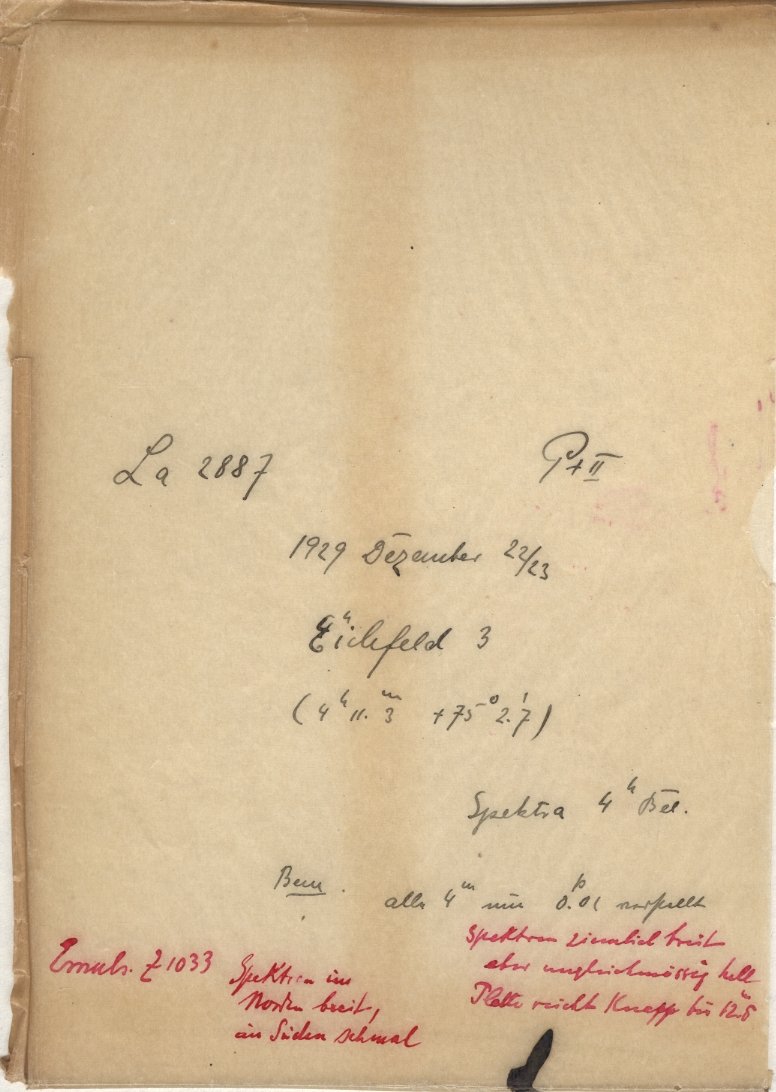 La 2887
P+II
1929 Dezember 22/23
Eichfeld 3
(4ʰ 11.ᵐ3 +75° 2.'7)
Spektra 4ʰ Bel.
Bem. alle 4ᵐ um 0.ᵖ01 verstellt
Emuls. Z 1033
Spektren im
Norden breit,
im Süden schmal
Spektren ziemlich breit
aber ungleichmässig hell
Platte reicht knapp bis 12.ᵐ5